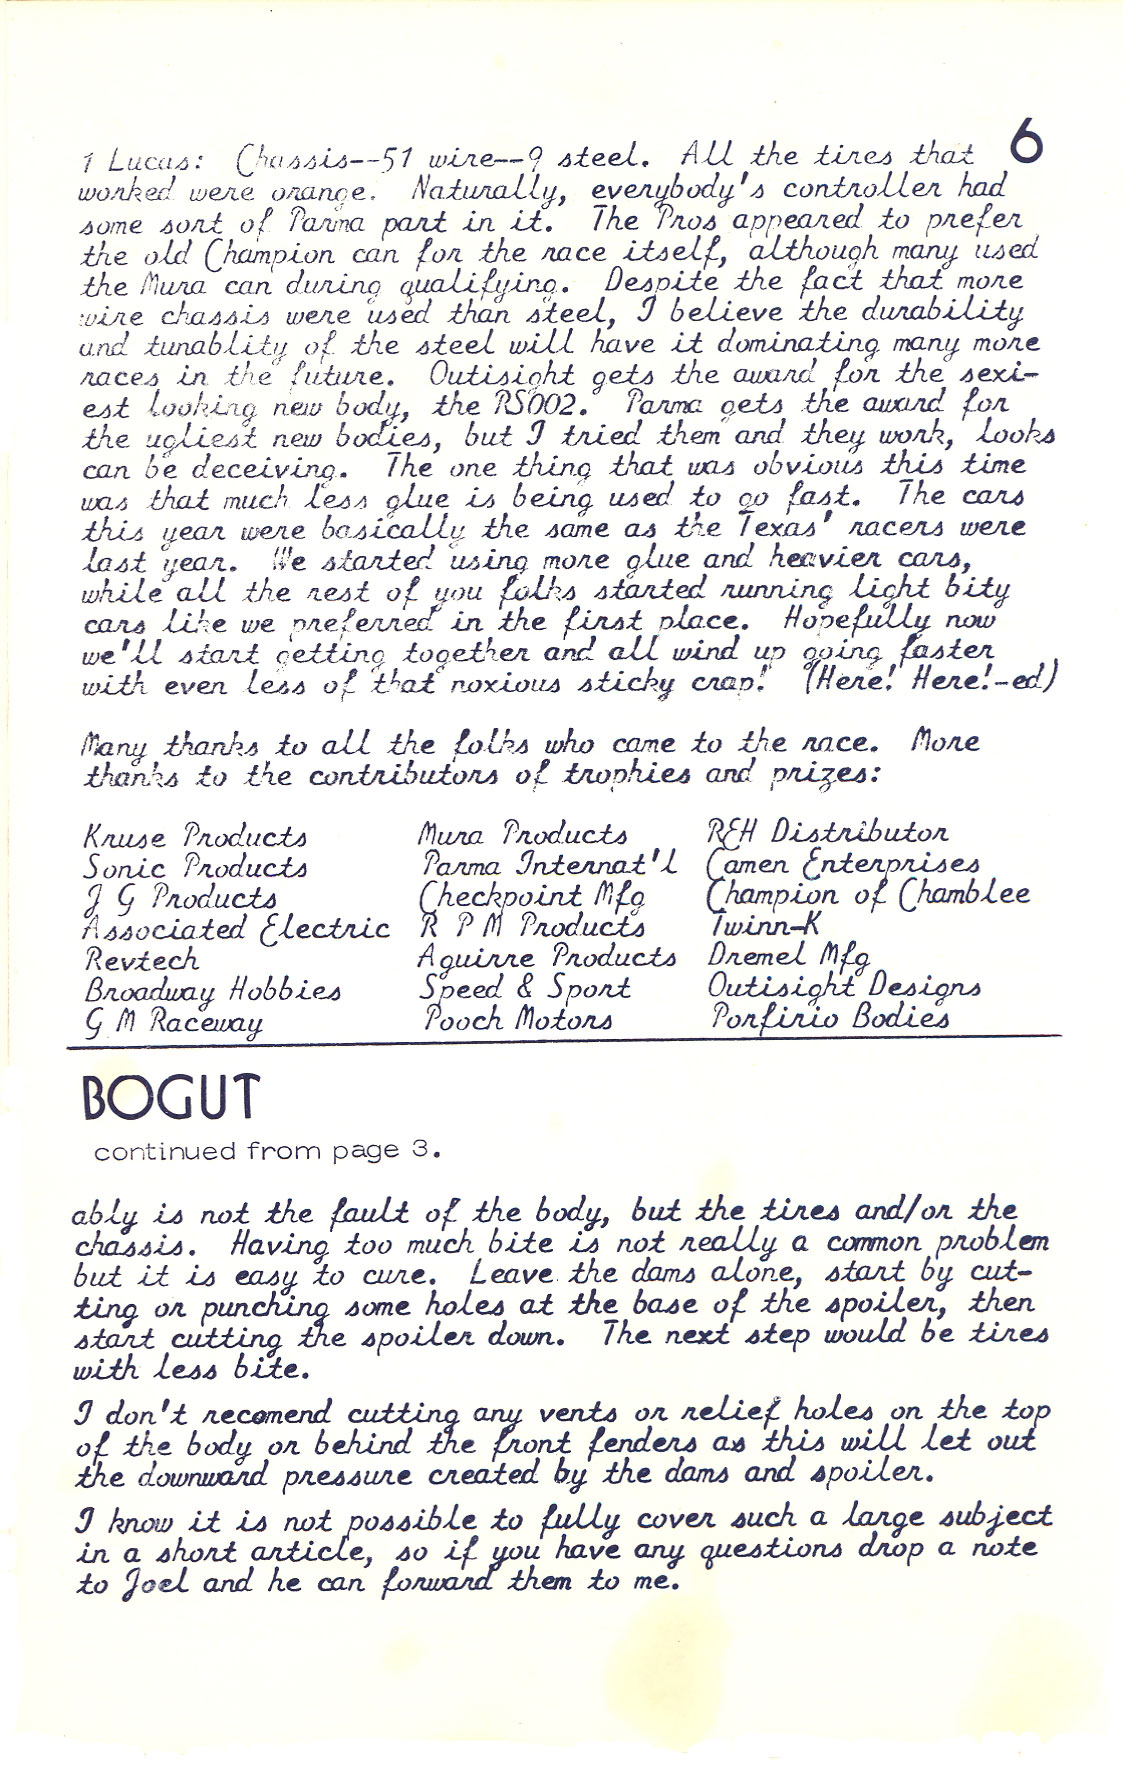 6
1 Lucas: Chassis--51 wire--9 steel. All the tires that
worked were orange. Naturally, everybody's controller had
some sort of Parma part in it. The Pros appeared to prefer
the old Champion can for the race itself, although many used
the Mura can during qualifying. Despite the fact that more
wire chassis were used than steel, I believe the durability
and tunablity of the steel will have it dominating many more
races in the future. Outisight gets the award for the sexi-
est looking new body, the RS002. Parma gets the award for
the ugliest new bodies, but I tried them and they work, looks
can be deceiving. The one thing that was obvious this time
was that much less glue is being used to go fast. The cars
this year were basically the same as the Texas' racers were
last year. We started using more glue and heavier cars,
while all the rest of you folks started running light bity
cars like we preferred in the first place. Hopefully now
we'll start getting together and all wind up going faster
with even less of that noxious sticky crap! (Here! Here!-ed)
Many thanks to all the folks who came to the race. More
thanks to the contributors of trophies and prizes:
Kruse Products Mura Products REH Distributor
Sonic Products Parma Internat'l Camen Enterprises
J G Products Checkpoint Mfg Champion of Chamblee
Associated Electric R P M Products Twinn-K
Revtech Aguirre Products Dremel Mfg
Broadway Hobbies Speed & Sport Outisight Designs
G M Raceway Pooch Motors Porfirio Bodies
BOGUT
continued from page 3.
ably is not the fault of the body, but the tires and/or the
chassis. Having too much bite is not really a common problem
but it is easy to cure. Leave the dams alone, start by cut-
ting or punching some holes at the base of the spoiler, then
start cutting the spoiler down. The next step would be tires
with less bite.
I don't recomend cutting any vents or relief holes on the top
of the body or behind the front fenders as this will let out
the downward pressure created by the dams and spoiler.
I know it is not possible to fully cover such a large subject
in a short article, so if you have any questions drop a note
to Joel and he can forward them to me.